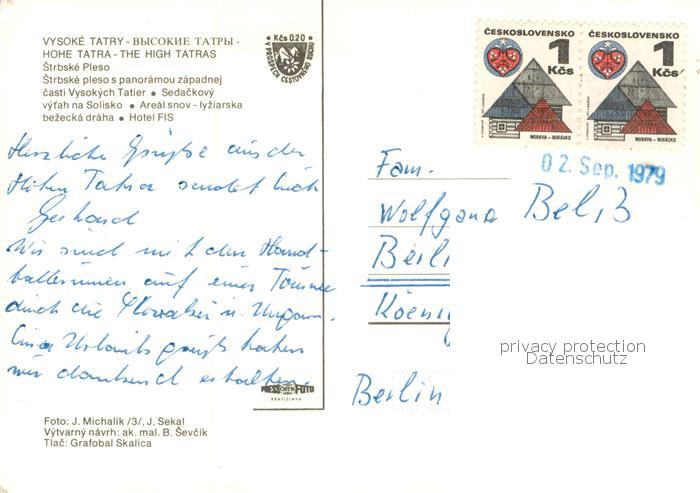 VYSOKÉ TATRY - ВЫСОКИЕ ТАТРЫ -
HOHE TATRA - THE HIGH TATRAS
Štrbské Pleso
Štrbské pleso s panorámou západnej
časti Vysokých Tatier • Sedačkový
výťah na Solisko • Areál snov - lyžiarska
bežecká dráha • Hotel FIS
Kčs 0.20
V PROSPECH CESTOVNÉHO RUCHU
ČESKOSLOVENSKO
1 Kčs
MORAVA - HORÁCKO
ČESKOSLOVENSKO
1 Kčs
MORAVA - HORÁCKO
02. Sep. 1979
Herzliche Grüße aus der
Hohen Tatra sendet Euch
Gerhard
Wir sind mit den Hand-
ballerinnen auf einer Tournee
durch die Slowakei u. Ungarn.
Eure Urlaubsgrüße haben
wir dankend erhalten.
Fam.
Wolfgang Bel
Berli
Koenig
Berlin
privacy protection
Datenschutz
PRESSFOTO
BRATISLAVA
Foto: J. Michalík /3/, J. Sekal
Výtvarný návrh: ak. mal. B. Ševčík
Tlač: Grafobal Skalica